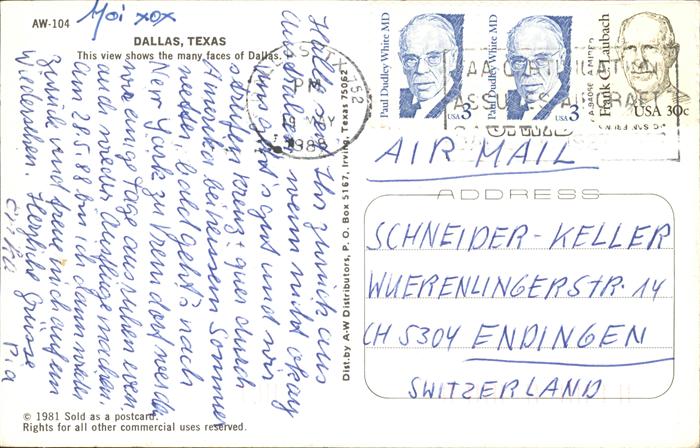 AW-104
Moi xox
DALLAS, TEXAS
This view shows the many faces of Dallas.
Hallo seid Ihr zurück aus
Australien, wenn nicht okay
Uns geht's gut und wir
sind kreuz + quer durch
Amerika bei heissem Sommer
wetter, bald geht's nach
New York zu Vreni dort werde
einige Tage ausruhen
und wieder Ausflüge machen.
am 2.5.88 bin ich dann wieder
zurück und freue mich auf ein
Wiedersehen. Herzliche Grüsse
Pia
© 1981 Sold as a postcard.
Rights for all other commercial uses reserved.
Dist. by A-W Distributors, P. O. Box 5167, Irving, Texas 75062
TX 752
PM
MAY
1988
Paul Dudley White MD
USA 3
Paul Dudley White MD
USA 3
Frank C. Laubach
USA 30c
AIR MAIL
ADDRESS
SCHNEIDER-KELLER
WUERENLINGERSTR. 14
CH 5304 ENDINGEN
SWITZERLAND